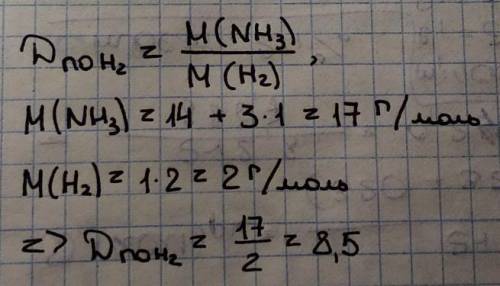 D по H₂ = M(NH₃) / M(H₂),
M(NH₃) = 14 + 3·1 = 17 г/моль
M(H₂) = 1·2 = 2 г/моль
=> D по H₂ = 17/2 = 8,5